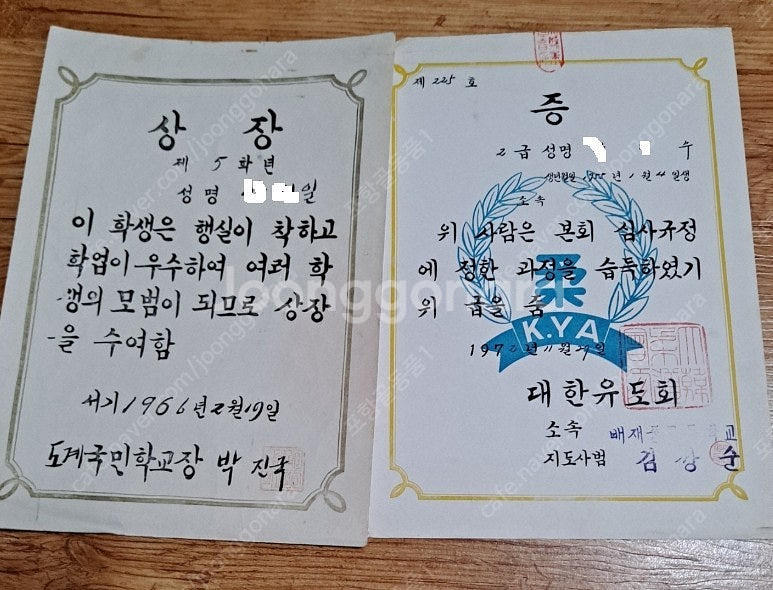 상 장
제 5 학년
성명 일
이 학생은 행실이 착하고
학업이 우수하여 여러 학
생의 모범이 되므로 상장
을 수여함
서기 1966년 2월 19일
도계국민학교장 박진국
제 225 호
증
2급 성명 수
생년월일 1955년 1월 4일생
소속
위 사람은 본회 심사규정
에 정환 과정을 습득하였기
위 급을 줌
柔
K.YA
1972년 11월 29일
대한유도회
소속 배재 교
지도사범 김상순
joonggonara